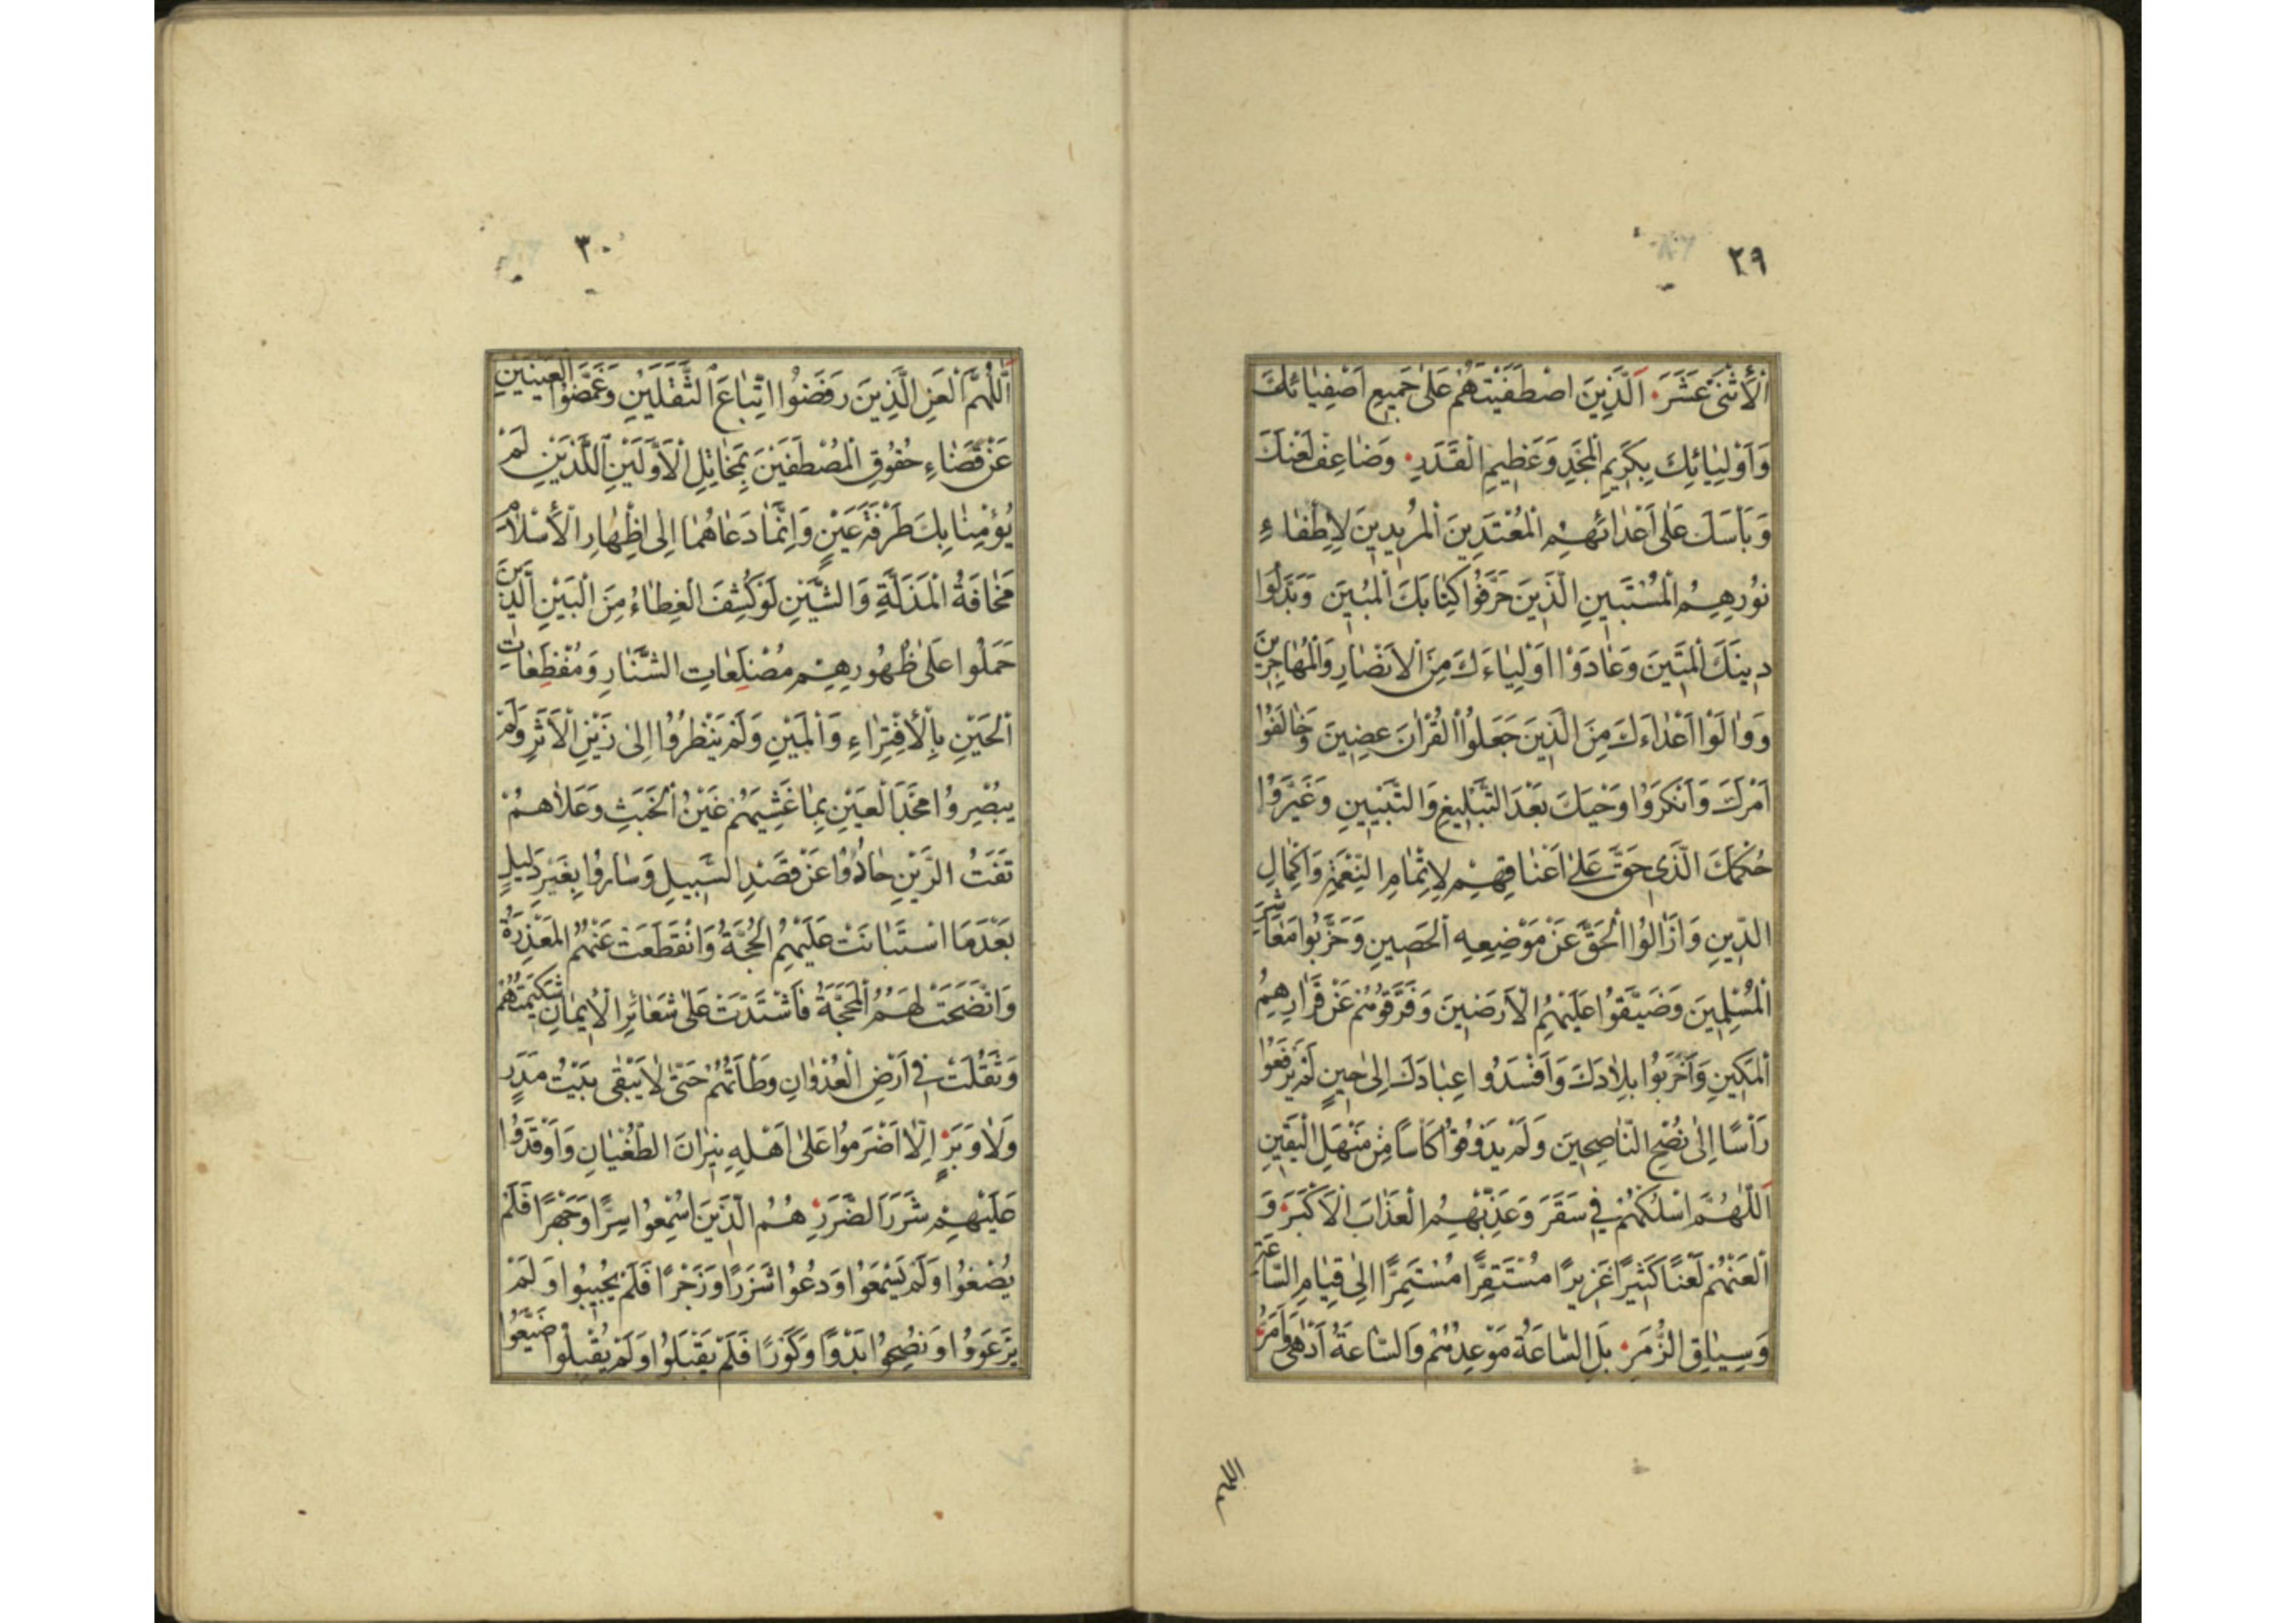 ٢٩
اَلْأَثْنَىٰ عَشَرَ اَلَّذِينَ اصْطَفَيْتَهُمْ عَلىٰ جَمِيعِ اَصْفِيٰائِكَ
وَاَوْلِيٰائِكَ بِكَرِيمِ الْمَجْدِ وَعَظِيمِ الْقَدَرِ وَضٰاعِفْ لَعْنَكَ
وَبَأْسَكَ عَلٰى اَعْدٰائِهِمِ الْمُعْتَدِينَ الْمُرِيدِينَ لِاِطْفٰاءِ
نُورِهِمِ الْمُسْتَبِينِ الَّذِينَ حَرَّفُوا كِتٰابَكَ الْمُبِينَ وَبَدَّلُوا
دِينَكَ الْمَتِينَ وَعٰادَوْا اَوْلِيٰاءَكَ مِنَ الْاَنْصٰارِ وَالْمُهٰاجِرِينَ
وَوٰالَوْا اَعْدٰاءَكَ مِنَ الَّذِينَ جَعَلُوا الْقُرْاٰنَ عِضِينَ وَخٰالَفُوا
اَمْرَكَ وَاَنْكَرُوا وَحْيَكَ بَعْدَ التَّبْلِيغِ وَالتَّبْيِينِ وَغَيَّرُوا
حُكْمَكَ الَّذِى حَقَّ عَلىٰ اَعْنٰاقِهِمْ لِاِتْمٰامِ النِّعْمَةِ وَاَكْمٰالِ
الدِّينِ وَاَزٰالُوا الْحَقَّ عَنْ مَوْضِعِهِ الْحَصِينِ وَحَرَّبُوا مَعٰاشِرَ
الْمُسْلِمِينَ وَضَيَّقُوا عَلَيْهِمِ الْاَرَضِينَ وَفَرَّقُوهُمْ عَنْ قَرٰارِهِمُ
الْمَكِينِ وَاَخْرَبُوا بِلٰادَكَ وَاَفْسَدُوا عِبٰادَكَ اِلىٰ حِينٍ لَمْ يَرْفَعُوا
رَأْسًا اِلىٰ نُصْحِ النّٰاصِحِينَ وَلَمْ يَذُوقُوا كَأْسًا مِنْ مَنْهَلِ الْيَقِينِ
اَللّٰهُمَّ اسْلُكْهُمْ فِي سَقَرَ وَعَذِّبْهُمِ الْعَذٰابَ الْاَكْبَرَ وَ
الْعَنْهُمْ لَعْنًا كَثِيرًا غَزِيرًا مُسْتَقِرًّا مُسْتَمِرًّا اِلىٰ قِيٰامِ السّٰاعَةِ
وَسِيٰاقِ الزُّمَرِ بَلِ السّٰاعَةُ مَوْعِدُهُمْ وَالسّٰاعَةُ اَدْهىٰ وَاَمَرُّ
اللهم
٣٠
اَللّٰهُمَّ الْعَنِ الَّذِينَ رَفَضُوا اتِّبٰاعَ الثَّقَلَيْنِ وَغَمَّضُوا الْعَيْنَيْنِ
عَنْ قَضٰاءِ حُقُوقِ الْمُصْطَفَيْنَ بِمَخٰايِلِ الْاَوَّلَيْنِ اللَّذَيْنِ لَمْ
يُؤْمِنٰا بِكَ طَرْفَةَ عَيْنٍ وَاِنَّمٰا دَعٰاهُمٰا اِلىٰ اِظْهٰارِ الْأِسْلٰامِ
مَخٰافَةُ الْمَذَلَّةِ وَالشَّيْنِ لَوْ كُشِفَ الْغِطٰاءُ مِنَ الْبَيْنِ الَّذِينَ
حَمَلُوا عَلىٰ ظُهُورِهِمْ مُضْلِعٰاتِ الشَّنٰارِ وَمُفْظِعٰاتِ
الْحَيْنِ بِالْأِفْتِرٰاءِ وَالْمَيْنِ وَلَمْ يَنْظُرُوا اِلىٰ زَيْنِ الْاَثَرِ وَلَمْ
يُبْصِرُوا مَخَدَ الْعَيْنِ بِمٰا غَشِيَهُمْ غَيْنُ الْخَبَثِ وَعَلٰاهُمْ
تَفَتُ الرَّيْنِ حٰادُوا عَنْ قَصْدِ السَّبِيلِ وَسٰارُوا بِغَيْرِ دَلِيلٍ
بَعْدَ مَا اسْتَبٰانَتْ عَلَيْهِمِ الْحُجَّةُ وَانْقَطَعَتْ عَنْهُمُ الْمَعْذِرَةُ
وَاتَّضَحَتْ لَهُمُ الْمَحَجَّةُ فَاشْتَدَّتْ عَلىٰ شَعٰائِرِ الْأِيمٰانِ شَكِيمَتُهُمْ
وَثَقُلَتْ فِي اَرْضِ الْعُدْوٰانِ وَطْأَتُهُمْ حَتّٰى لٰا يَبْقٰى بَيْتُ مَدَرٍ
وَلٰا وَبَرٍ اِلّٰا اَضْرَمُوا عَلىٰ اَهْلِهِ نِيرٰانَ الطُّغْيٰانِ وَاَوْقَدُوا
عَلَيْهِمْ شَرَرَ الضَّرَرِ هُمُ الَّذِينَ اُسْمِعُوا سِرًّا وَجَهْرًا فَلَمْ
يُصْغُوا وَلَمْ يَسْمَعُوا وَدُعُوا شَزَرًا وَزَجْرًا فَلَمْ يُجِيبُوا وَلَمْ
يَرْعَوُوا وَنُصِحُوا بَدْوًا وَكَوْرًا فَلَمْ يَقْبَلُوا وَلَمْ يُقْبِلُوا ضَيَّعُوا